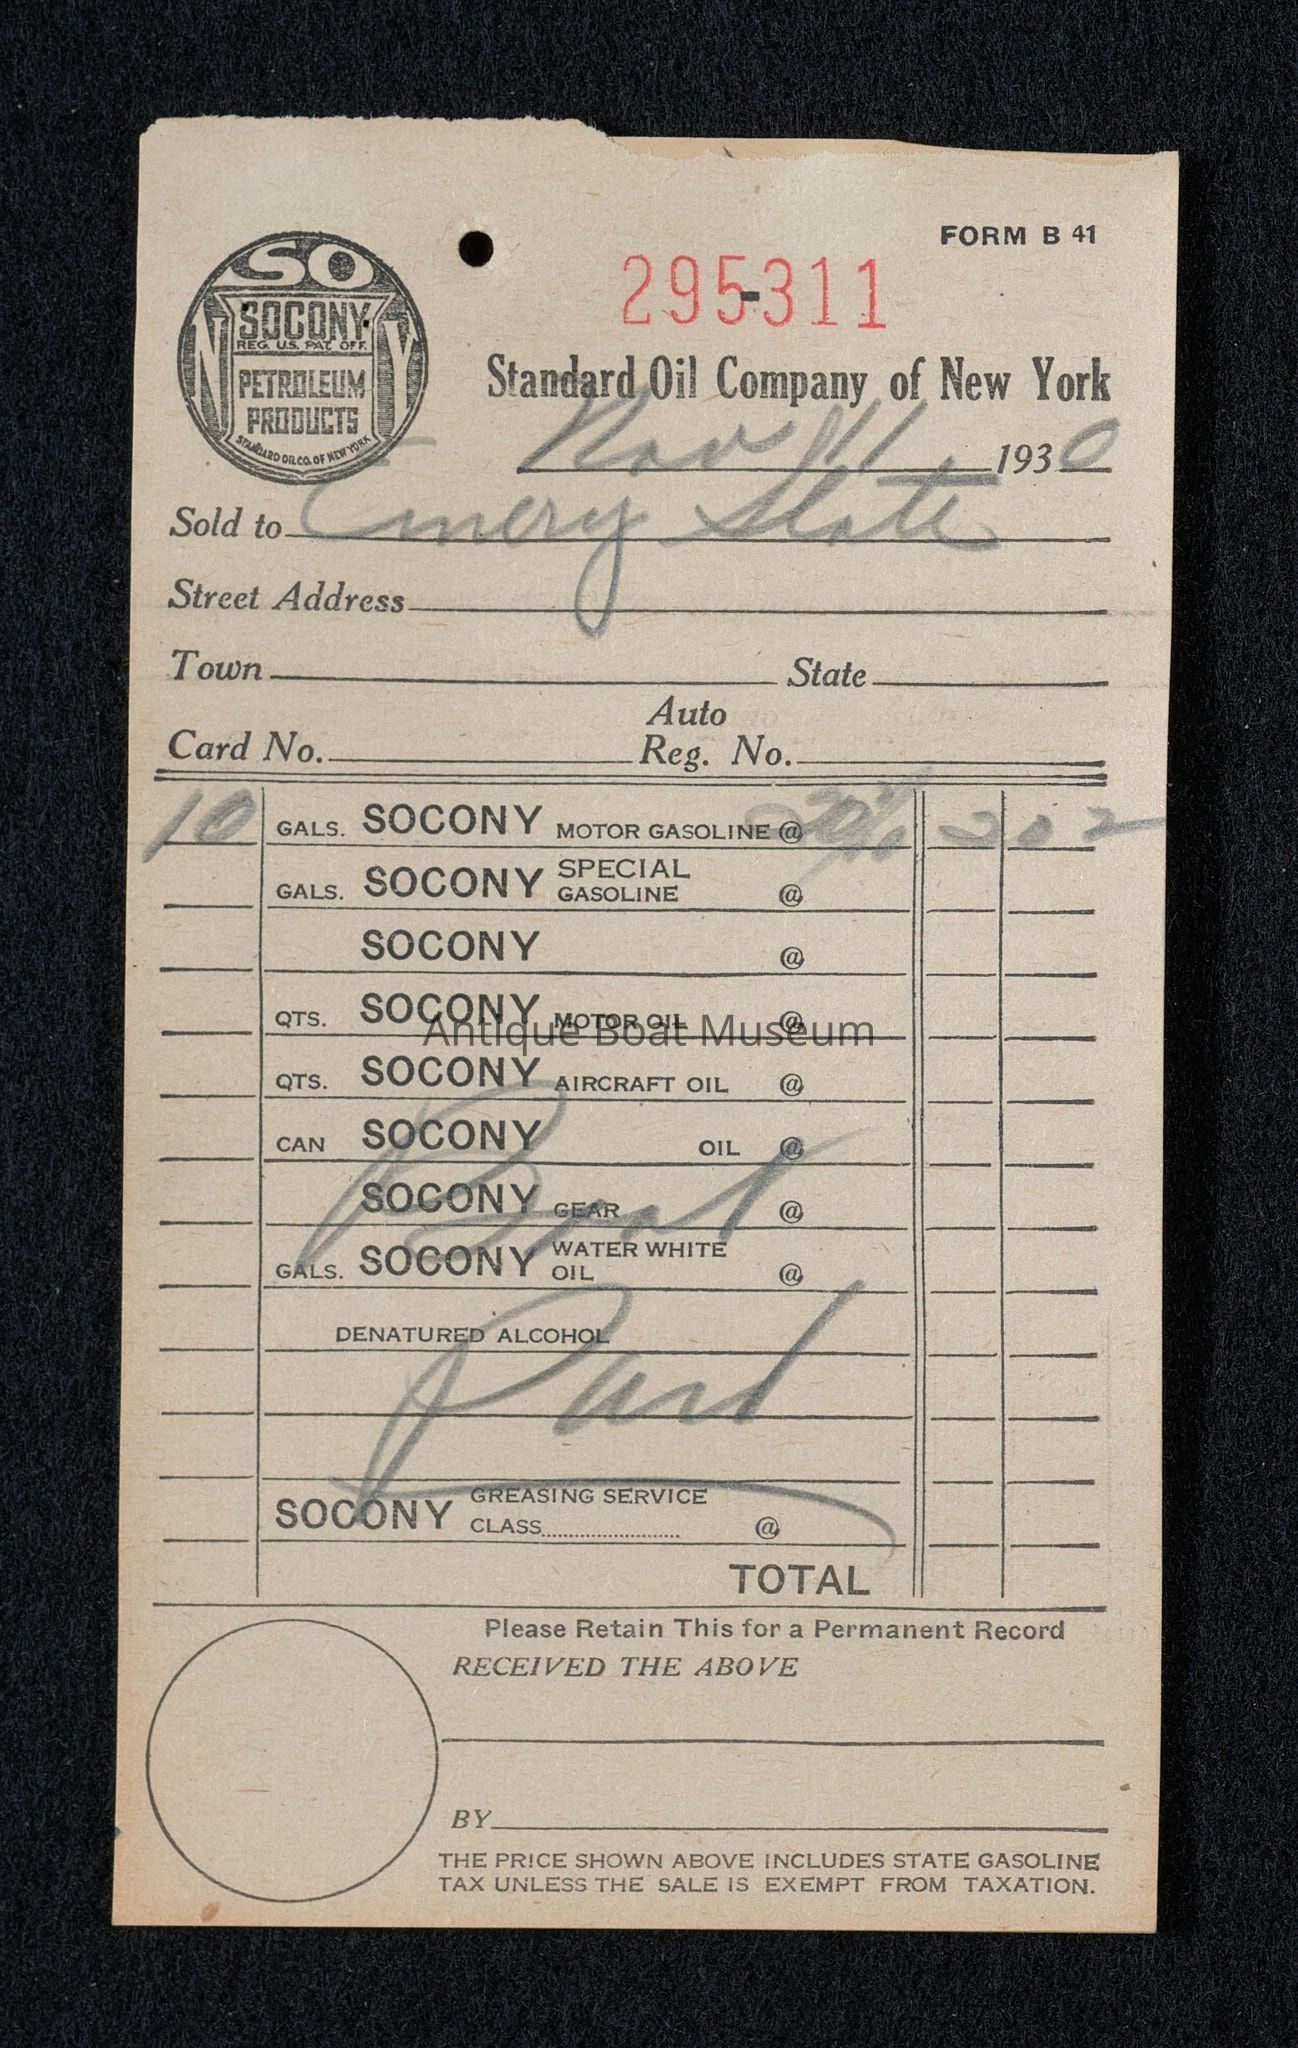 FORM B 41
SO
NY
SOCONY
REG. U.S. PAT. OFF.
PETROLEUM
PRODUCTS
STANDARD OIL CO. OF NEW YORK
295-311
Standard Oil Company of New York
Nov 11 1930
Sold to Emery
Street Address
Town State
Auto
Card No. Reg. No.
10 GALS. SOCONY MOTOR GASOLINE @ 20 2 02
GALS. SOCONY SPECIAL GASOLINE @
SOCONY @
QTS. SOCONY MOTOR OIL @
Antique Boat Museum
QTS. SOCONY AIRCRAFT OIL @
CAN SOCONY OIL @
Boat
SOCONY GEAR @
GALS. SOCONY WATER WHITE OIL @
DENATURED ALCOHOL
SOCONY GREASING SERVICE
CLASS @
TOTAL
Please Retain This for a Permanent Record
RECEIVED THE ABOVE
BY
THE PRICE SHOWN ABOVE INCLUDES STATE GASOLINE
TAX UNLESS THE SALE IS EXEMPT FROM TAXATION.